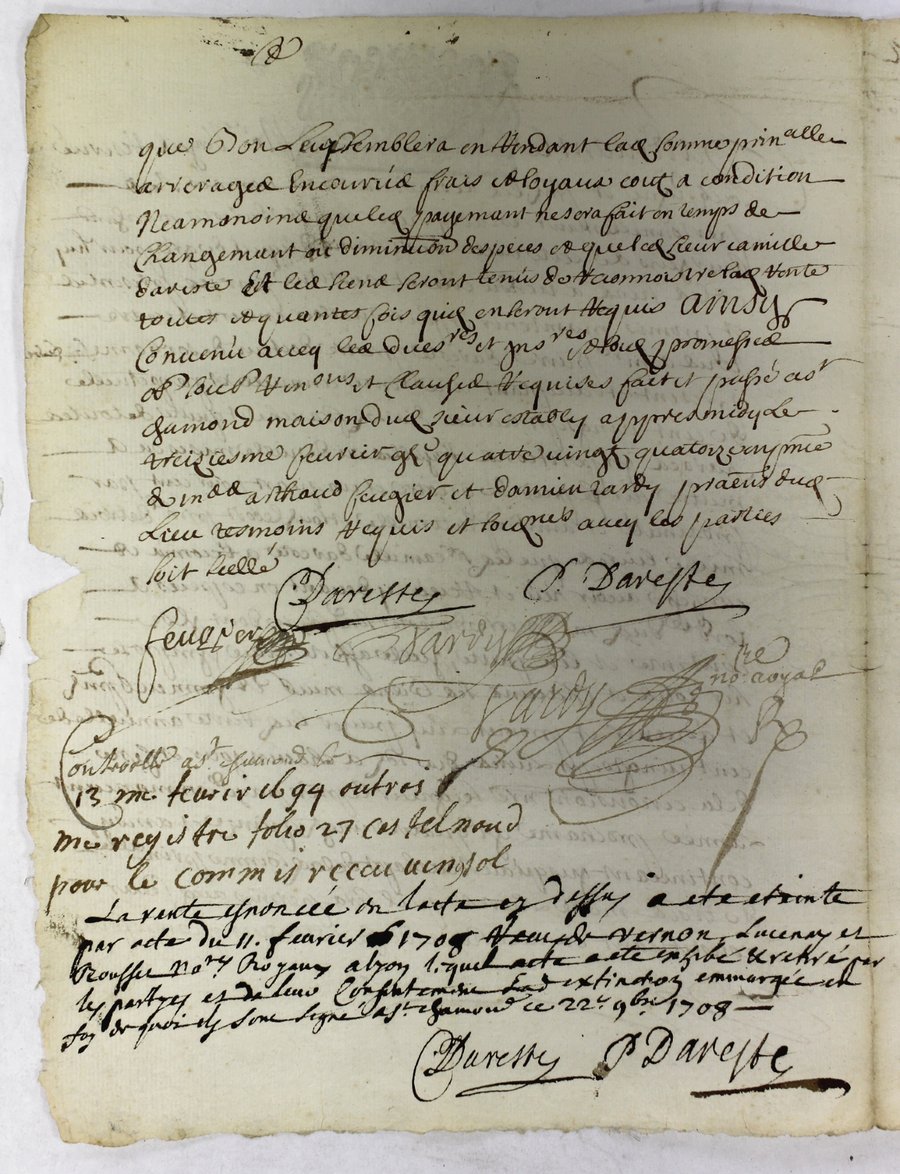 que bon leur semblera en Rendant lad somme prin^alle
arrerages Encourües frais et loyaux cout a condition
Neamonoins que led payemant ne sera fait en temps de
Changemant ou diminution despeces et que led sieur camille
dareste Et les siens seront tenus de recconnoistre lad Rente
toutes et quantes fois quils en seront Requis ainsy
Convenu avecq les promesses
Clauses Requises fait et passé a s^t
chamond maison dud sieur estably appres midy le
treiziesme feurier quatre vingt quatorze
arthaud feugier et damien tardy dud
Lieu tesmoins Requis et avecq les parties
soit sellé
Dareste P Dareste
feugier Tardy
Tardy no^re Royal
Controllé a s^t chamond le
13 me feurir 1694 outros
me registre folio 27 castelnaud
pour le commis receu vingt sol
La rente enoncée en lacte cy dessus a eté eteinte
par acte du 11. feurier 1708 Receu de vernon, Lucenay et
Rousset No^res Royaux a lyon lequel acte a eté exhibé & retiré par
les partyes et de leur Consentement Lad extinction emmargée en
foy de quoi ils sont signé a s^t chamond ce 22^e 9^bre 1708
Dareste P Dareste